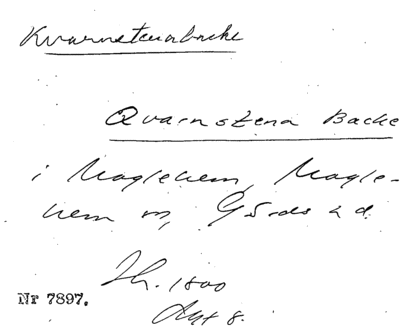 Kvarnstenabacke
Qvarnstena Backe
i Maglehem, Magle-
hem sn, Gärds hd.
Nr 7897.
1800
Akt 8.